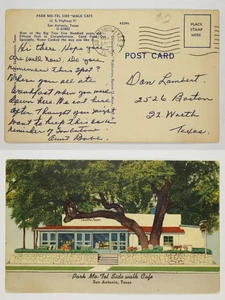 PARK MO-TEL SIDE-WALK CAFE
U. S. Highway 81
San Antonio, Texas
Hi there Hope you
are well now. Do you
remember this spot?
Where you all ate
breakfast when you were
down here. We eat here
often. Thought you might
want to keep this as a
reminder of
Aunt
POST CARD
PLACE
STAMP
HERE
Dan Lambert
2526 Boston
Ft. Worth
Texas.
Park Mo-Tel Side walk Cafe
San Antonio, Texas